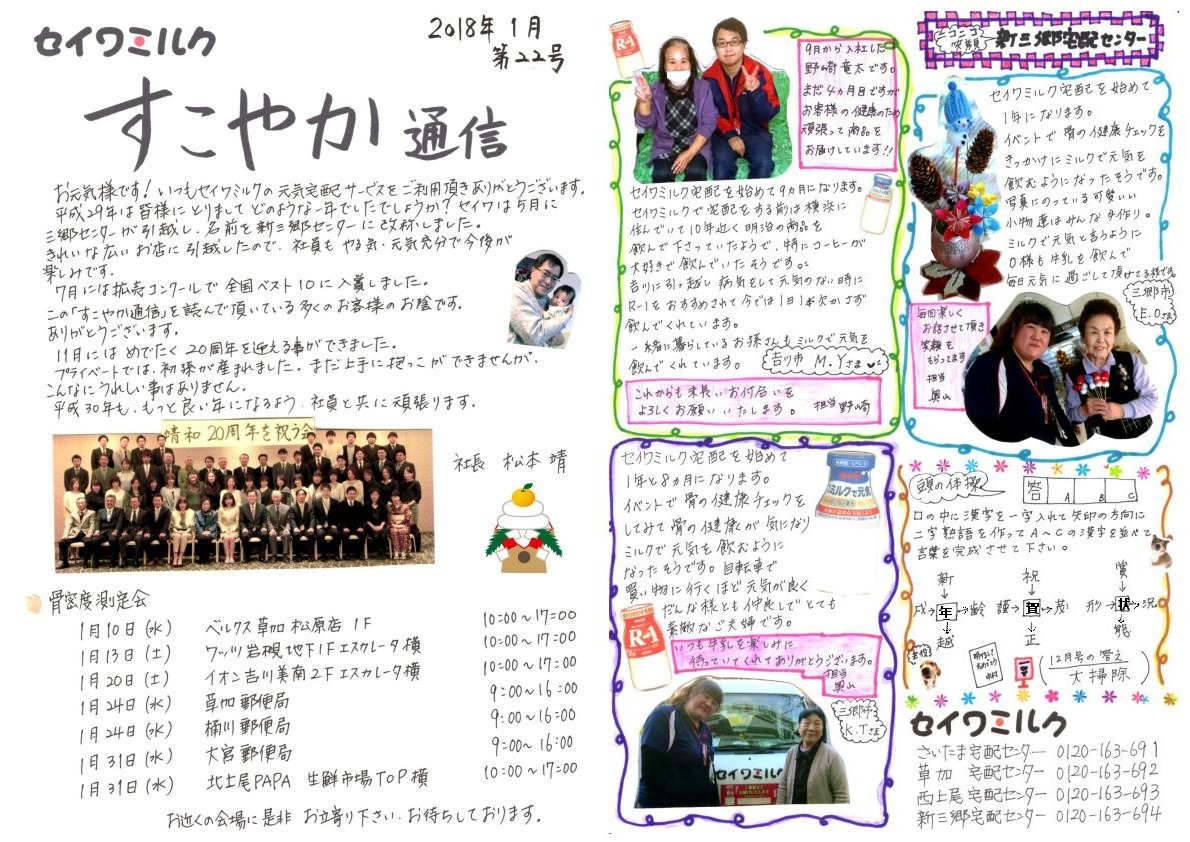 セイワミルク
2018年1月
第22号
すこやか通信
お元気様です！いつもセイワミルクの元気宅配サービスをご利用頂きありがとうございます。
平成29年は皆様にとりましてどのような一年でしたでしょうか？セイワは5月に
三郷センターが引越し、名前を新三郷センターに改称しました。
きれいな広いお店に引越したので、社員もやる気・元気充分で今後が
楽しみです。
7月には拡売コンクールで全国ベスト10に入賞しました。
この「すこやか通信」を読んで頂いている多くのお客様のお陰です。
ありがとうございます。
11月にはめでたく20周年を迎える事ができました。
プライベートでは、初孫が産まれました。まだ上手に抱っこができませんが、
こんなにうれしい事はありません。
平成30年も、もっと良い年になるよう、社員と共に頑張ります。
靖和20周年を祝う会
社長 松本 靖
骨密度測定会
1月10日(水) ベルクス草加松原店 1F 10:00～17:00
1月13日(土) ワッツ岩槻地下1Fエスカレータ横 10:00～17:00
1月20日(土) イオン吉川美南2Fエスカレータ横 10:00～17:00
1月24日(水) 草加郵便局 9:00～16:00
1月24日(水) 桶川郵便局 9:00～16:00
1月31日(水) 大宮郵便局 9:00～16:00
1月31日(水) 北上尾PAPA 生鮮市場TOP横 10:00～17:00
お近くの会場に是非お立寄り下さい。お待ちしております。
R-1
9月から入社した
野崎竜太です。
まだ4ヵ月目ですが
お客様の健康のため
頑張って商品を
お届けしています!!
セイワミルク宅配を始めて9ヵ月になります。
セイワミルクで宅配をする前は横浜に
住んでいて10年近く明治の商品を
飲んで下さっていたようで、特にコーヒーが
大好きで飲んでいたそうです。
吉川に引っ越し病気をして元気のない時に
R-1をおすすめされて今では1日1本欠かさず
飲んでくれています。
一緒に暮らしているお孫さんもミルクで元気を
飲んでくれています。
吉川市 M.Yさま
これからも末長いお付合いを
よろしくお願いいたします。 担当 野崎
セイワミルク宅配を始めて
1年と8ヵ月になります。
イベントで骨の健康チェックを
してみて骨の健康が気になり
ミルクで元気を飲むように
なったそうです。自転車で
買い物に行くほど元気が良く
だんな様とも仲良しでとても
素敵なご夫婦です。
ミルクで元気
R-1
いつも牛乳を楽しみに
待っていてくれてありがとうございます。
担当
奥山
三郷市
K.Tさま
セイワミルク
ニコニコ
笑顔
新三郷宅配センター
セイワミルク宅配を始めて
1年になります。
イベントで骨の健康チェックを
きっかけにミルクで元気を
飲むようになったそうです。
写真にのっている可愛い
小物達はみんな手作り。
ミルクで元気と言うように
O様も牛乳を飲んで
毎日元気に過ごして頂けてる様です。
三郷市
E.Oさま
毎回楽しく
お話させて頂き
笑顔を
もらってます
担当
奥山
頭の体操
答 A B C
口の中に漢字を一字入れて矢印の方向に
二字熟語を作ってA～Cの漢字を並べて
言葉を完成させて下さい。
新 祝 賞
戌→年→齢 謹→賀→茂 形→状→況
越 正 態
12月号の答え
大掃除
セイワミルク
さいたま宅配センター 0120-163-691
草加 宅配センター 0120-163-692
西上尾宅配センター 0120-163-693
新三郷宅配センター 0120-163-694